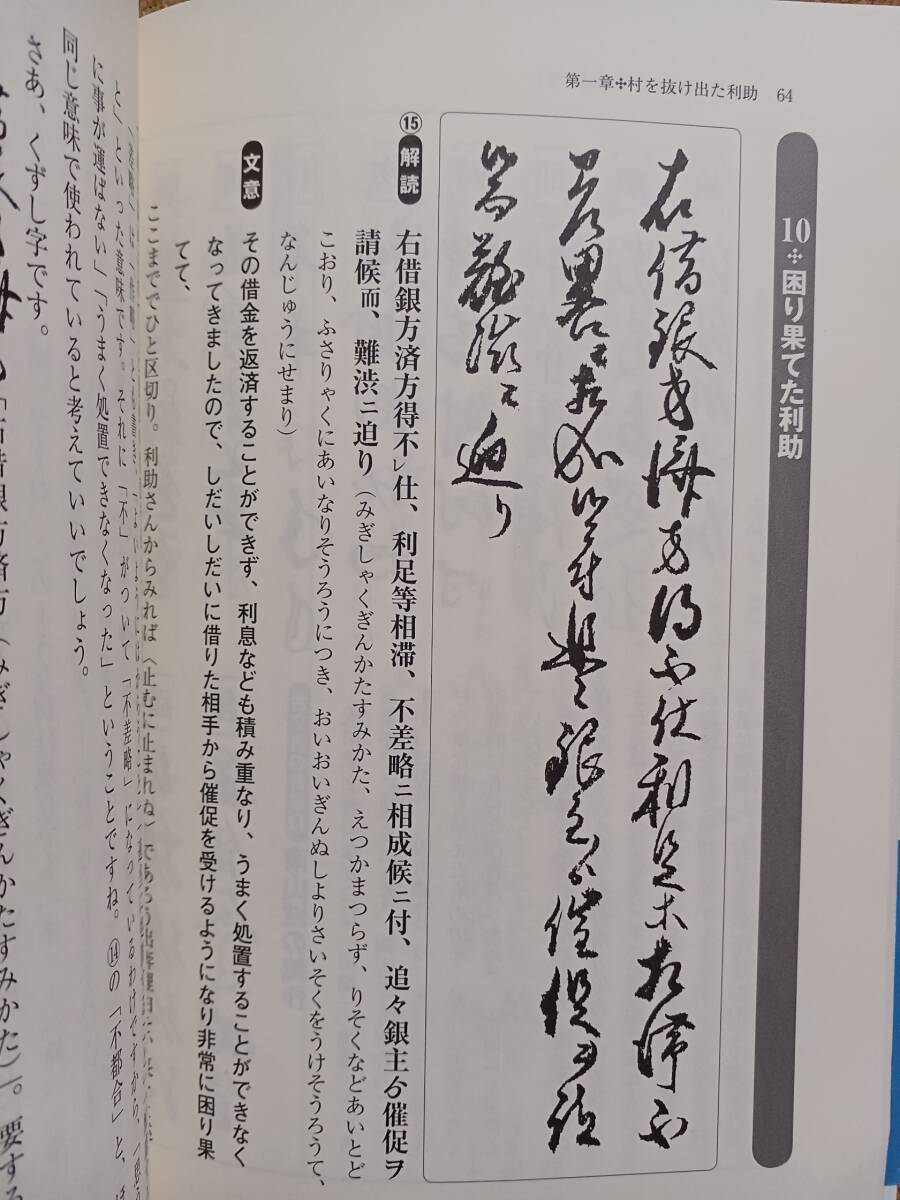 第一章✣村を抜け出た利助 64
10✣困り果てた利助
右借銀方済方得不仕利足等相滞不
差略ニ相成候ニ付追々銀主ゟ催促ヲ請
候而難渋ニ迫り
⑮ 解読 右借銀方済方得不レ仕、利足等相滞、不差略ニ相成候ニ付、追々銀主ゟ催促ヲ
請候而、難渋ニ迫り（みぎしゃくぎんかたすみかた、えつかまつらず、りそくなどあいとど
こおり、ふさりゃくにあいなりそうろうにつき、おいおいぎんぬしよりさいそくをうけそうろうて、
なんじゅうにせまり）
文意 その借金を返済することができず、利息なども積み重なり、うまく処置することができなく
なってきましたので、しだいしだいに借りた相手から催促を受けるようになり非常に困り果
てて、
ここまででひと区切り。利助さんからみれば〈止むに止まれぬ〉であろう出奔理由
と」といった意味です。それに「不」がついて「不差略」になっているわけですから、
に事が運ばない」「うまく処置できなくなった」ということですね。⑭の「不都合」と、ほ
同じ意味で使われていると考えていいでしょう。
さあ、くずし字です。
「右借銀方済方（みぎしゃくぎんかたすみかた）」。要する